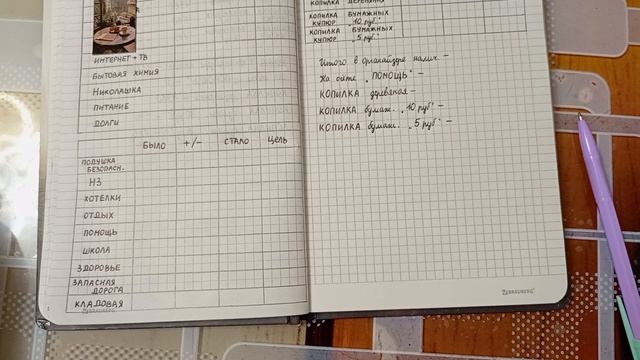 ИНТЕРНЕТ + ТВ
БЫТОВАЯ ХИМИЯ
НИКОЛАШКА
ПИТАНИЕ
ДОЛГИ
БЫЛО +/- СТАЛО ЦЕЛЬ
ПОДУШКА
БЕЗОПАСН.
НЗ
ХОТЕЛКИ
ОТДЫХ
ПОМОЩЬ
ШКОЛА
ЗДОРОВЬЕ
ЗАПАСНАЯ
ДОРОГА
КЛАДОВАЯ
BRAUBERG
КОПИЛКА
КОПИЛКА БУМАЖНЫХ
КУПЮР "10 руб."
КОПИЛКА БУМАЖНЫХ
КУПЮР "5 руб."
Итого в органайзере налич. -
На счёте "ПОМОЩЬ" -
КОПИЛКА деревяная -
КОПИЛКА бумаж. "10 руб" -
КОПИЛКА бумаж. "5 руб" -
BRAUBERG